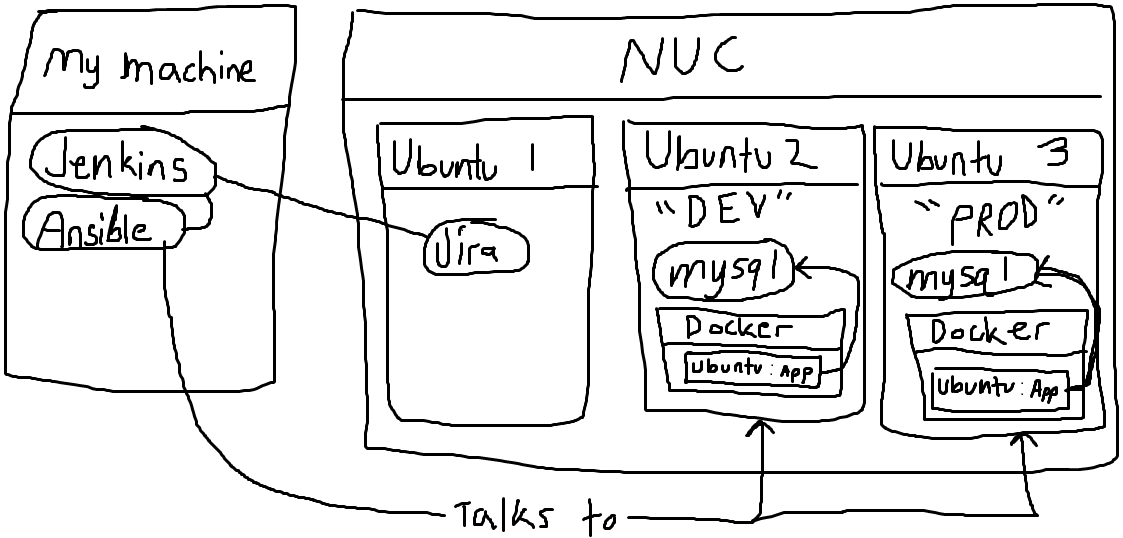 My machine
Jenkins
Ansible
NUC
Ubuntu 1
Jira
Ubuntu 2
"DEV"
mysql
Docker
Ubuntu: App
Ubuntu 3
"PROD"
mysql
Docker
Ubuntu: App
Talks to